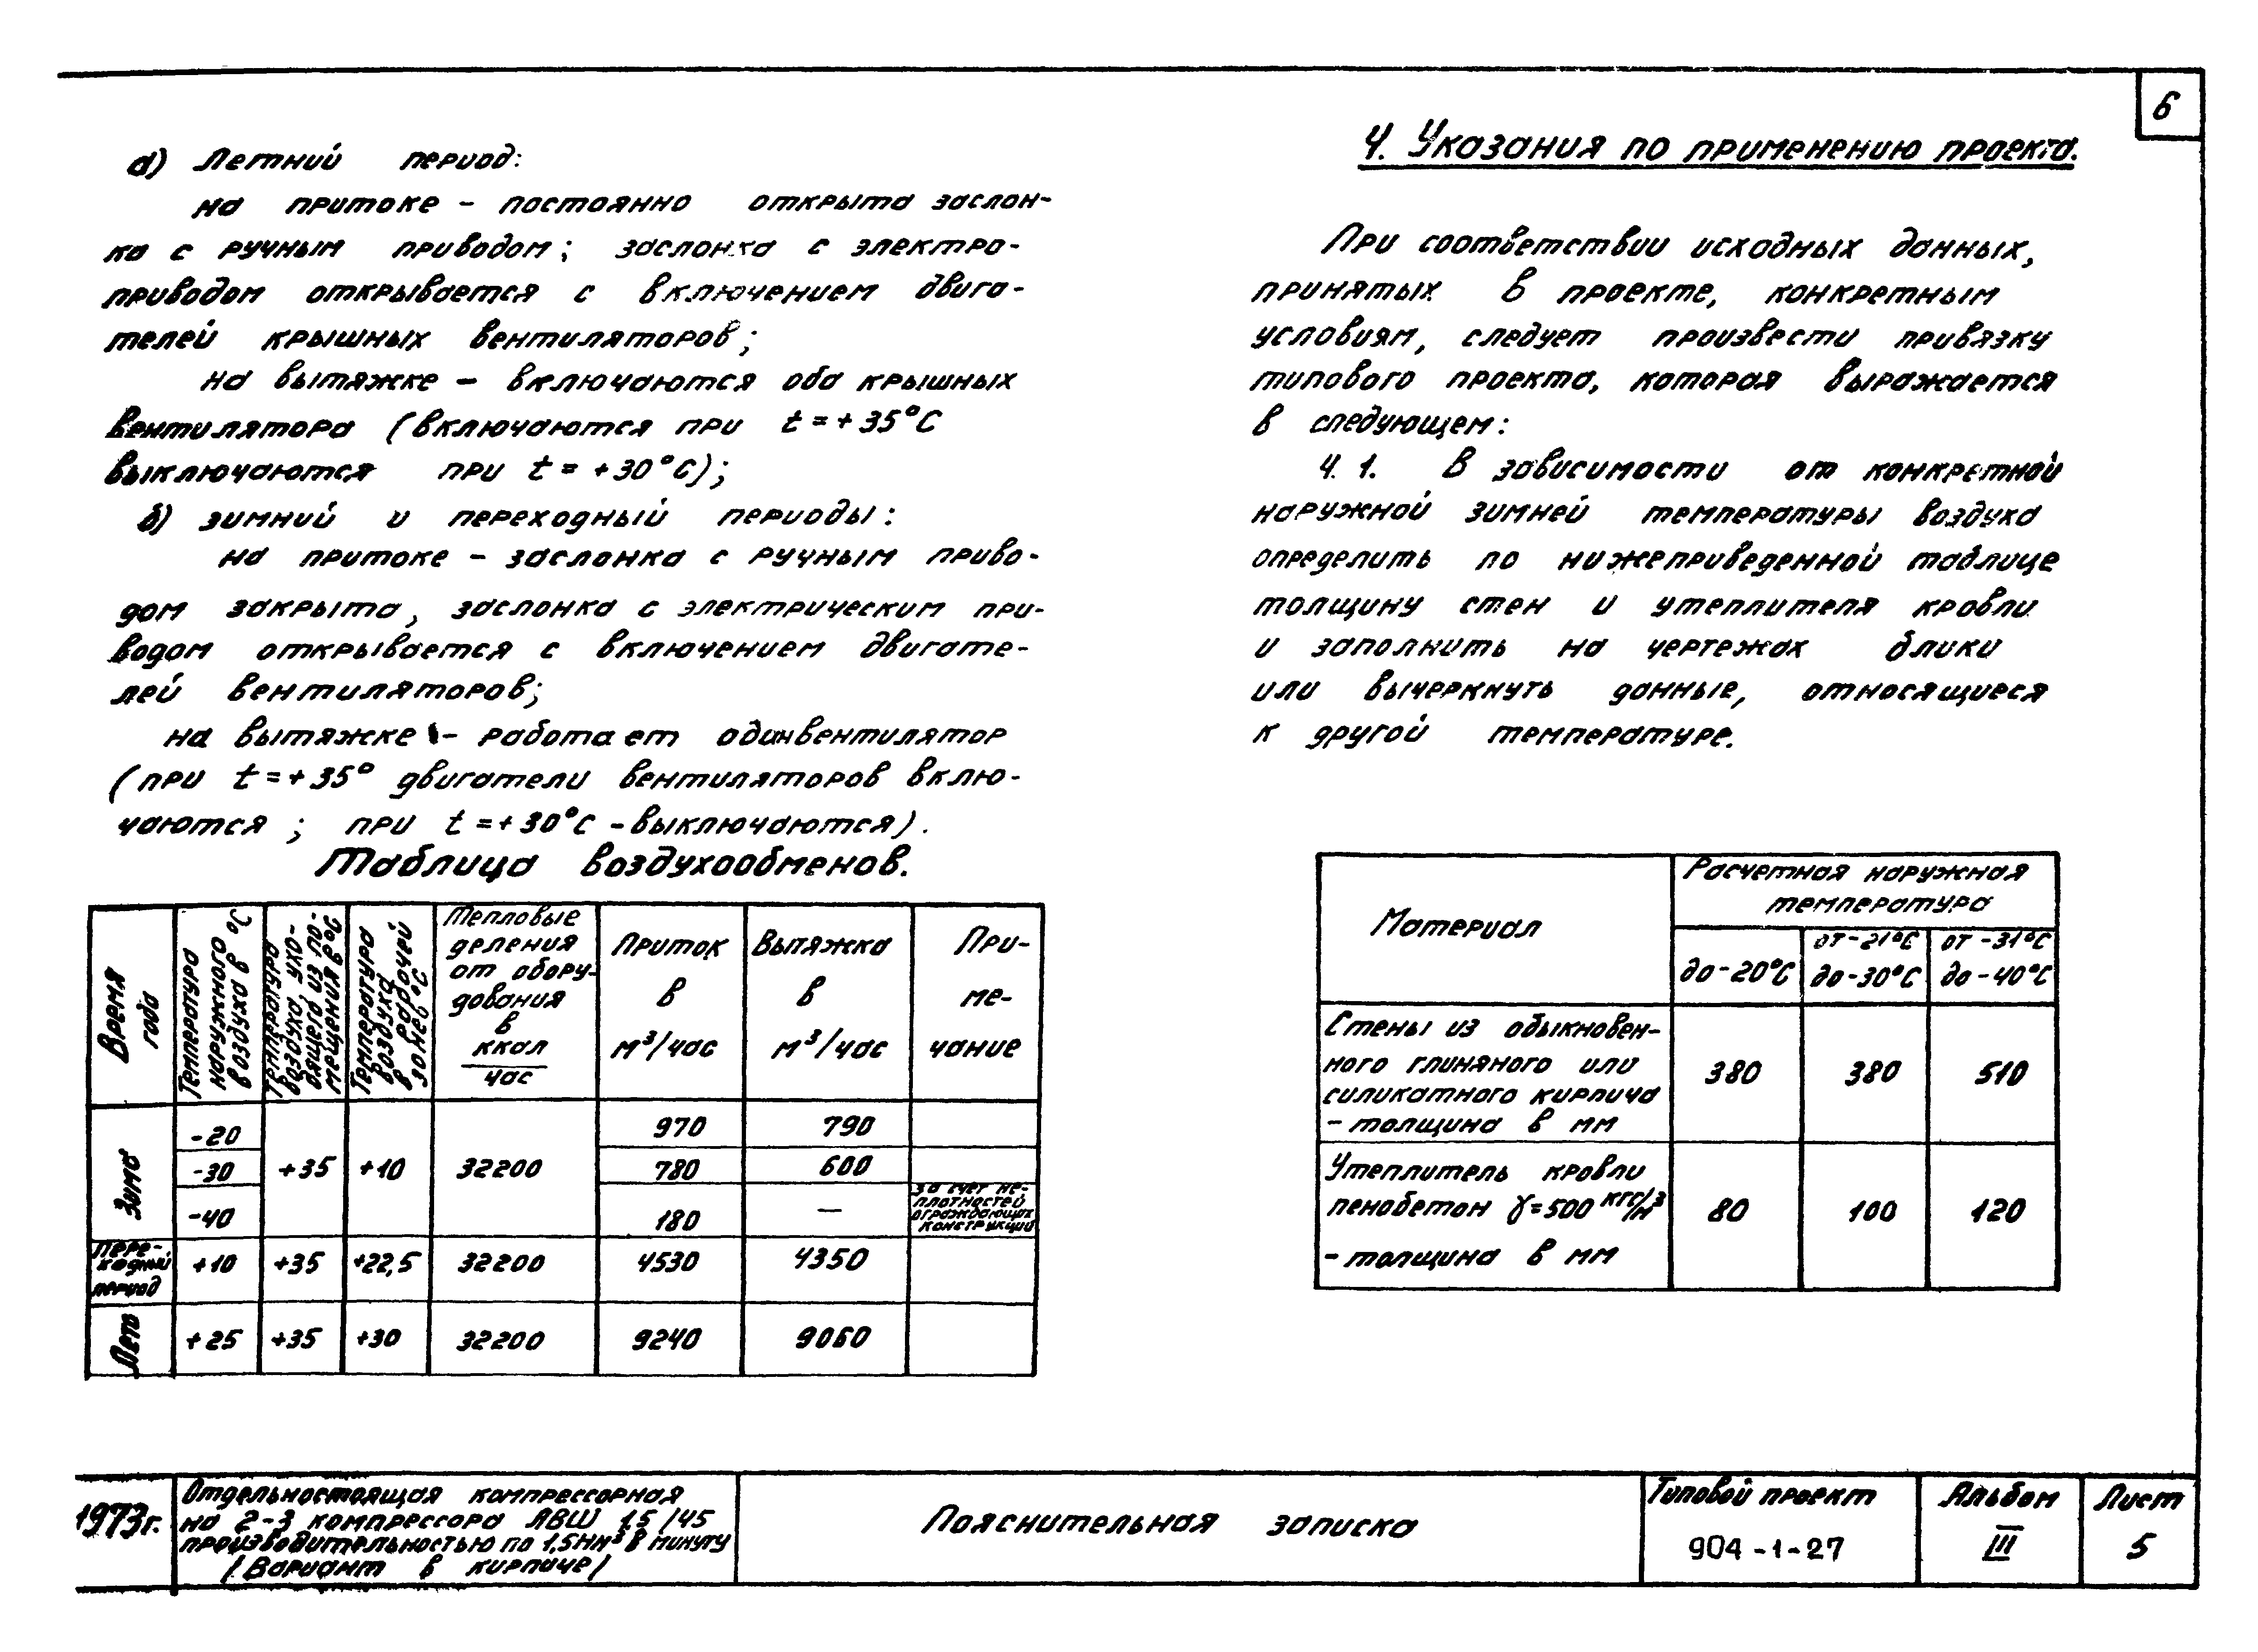 6
а) Летний период:
на притоке - постоянно открыта заслон-
ка с ручным приводом; заслонка с электро-
приводом открывается с включением двига-
телей крышных вентиляторов;
на вытяжке - включаются оба крышных
вентилятора (включаются при t = +35°С
выключаются при t = +30°С);
б) зимний и переходный периоды:
на притоке - заслонка с ручным приво-
дом закрыта, заслонка с электрическим при-
водом открывается с включением двигате-
лей вентиляторов;
на вытяжке - работает один вентилятор
(при t = +35° двигатели вентиляторов вклю-
чаются; при t = +30°С - выключаются).
Таблица воздухообменов.
Время
года
Температура
наружного
воздуха в °С
Температура
воздуха, ухо-
дящего из по-
мещения в °С
Температура
воздуха
в рабочей
зоне в °С
Тепловые
деления
от обору-
дования
в
ккал
час
Приток
в
м³/час
Вытяжка
в
м³/час
При-
ме-
чание
Зима
-20
-30
-40
+35
+10
32200
970
790
780
600
180
—
за счет не-
плотностей
ограждающих
конструкций
Пере-
ходный
период
+10
+35
+22,5
32200
4530
4350
Лето
+25
+35
+30
32200
9240
9060
4. Указания по применению проекта.
При соответствии исходных данных,
принятых в проекте, конкретным
условиям, следует произвести привязку
типового проекта, которая выражается
в следующем:
4.1. В зависимости от конкретной
наружной зимней температуры воздуха
определить по нижеприведенной таблице
толщину стен и утеплителя кровли
и заполнить на чертежах блики
или вычеркнуть данные, относящиеся
к другой температуре.
Материал
Расчетная наружная
температура
до -20°С
от -21°С
до -30°С
от -31°С
до -40°С
Стены из обыкновен-
ного глиняного или
силикатного кирпича
- толщина в мм
380
380
510
Утеплитель кровли
пенобетон γ=500 кгс/м³
- толщина в мм
80
100
120
1973г.
Отдельностоящая компрессорная
на 2-3 компрессора АВШ 1,5/45
производительностью по 1,5 нм³ в минуту
(Вариант в кирпиче)
Пояснительная записка
Типовой проект
904-1-27
Альбом
III
Лист
5